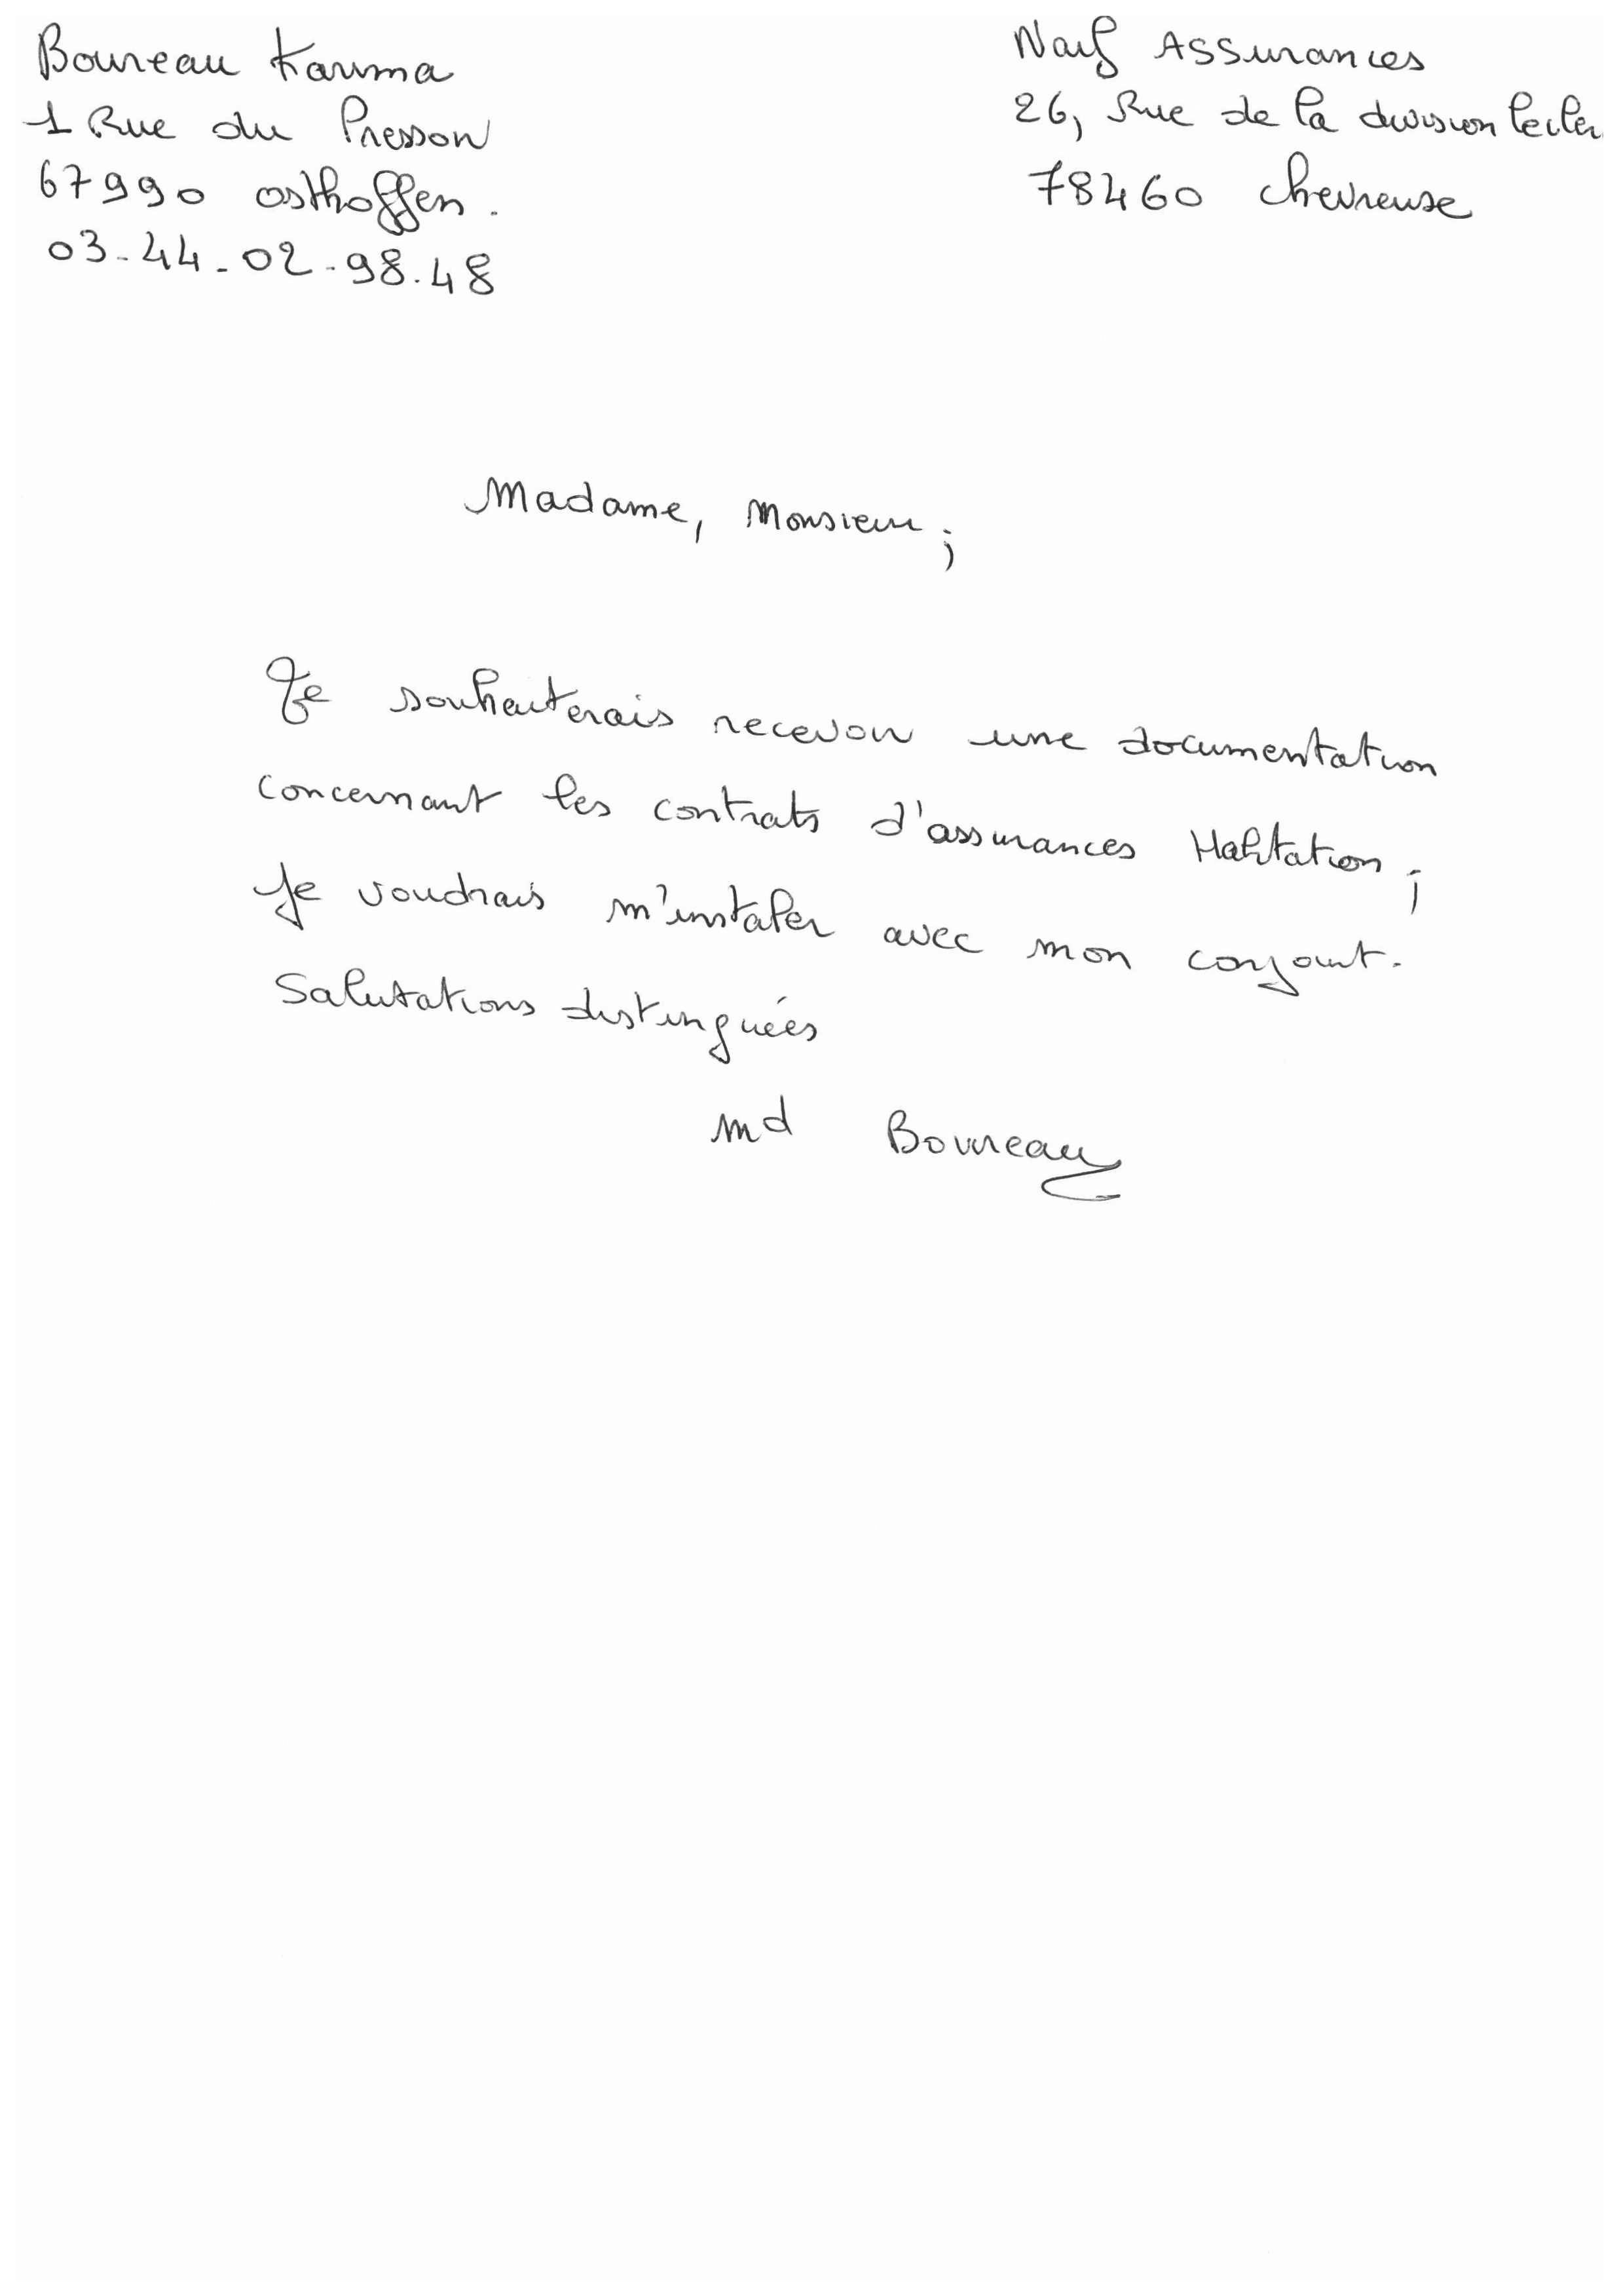 Boureau Karima
1 Rue du Presson
67990 Osthoffen.
03-44-02-98.48
Naif Assurances
26, Rue de la division Lecler
78460 Chevreuse
Madame, Monsieur;
Je souhaiterais recevoir une documentation
concernant les contrats d'assurances Habitation;
Je voudrais m'installer avec mon conjoint.
Salutations distinguées
Md Boureau